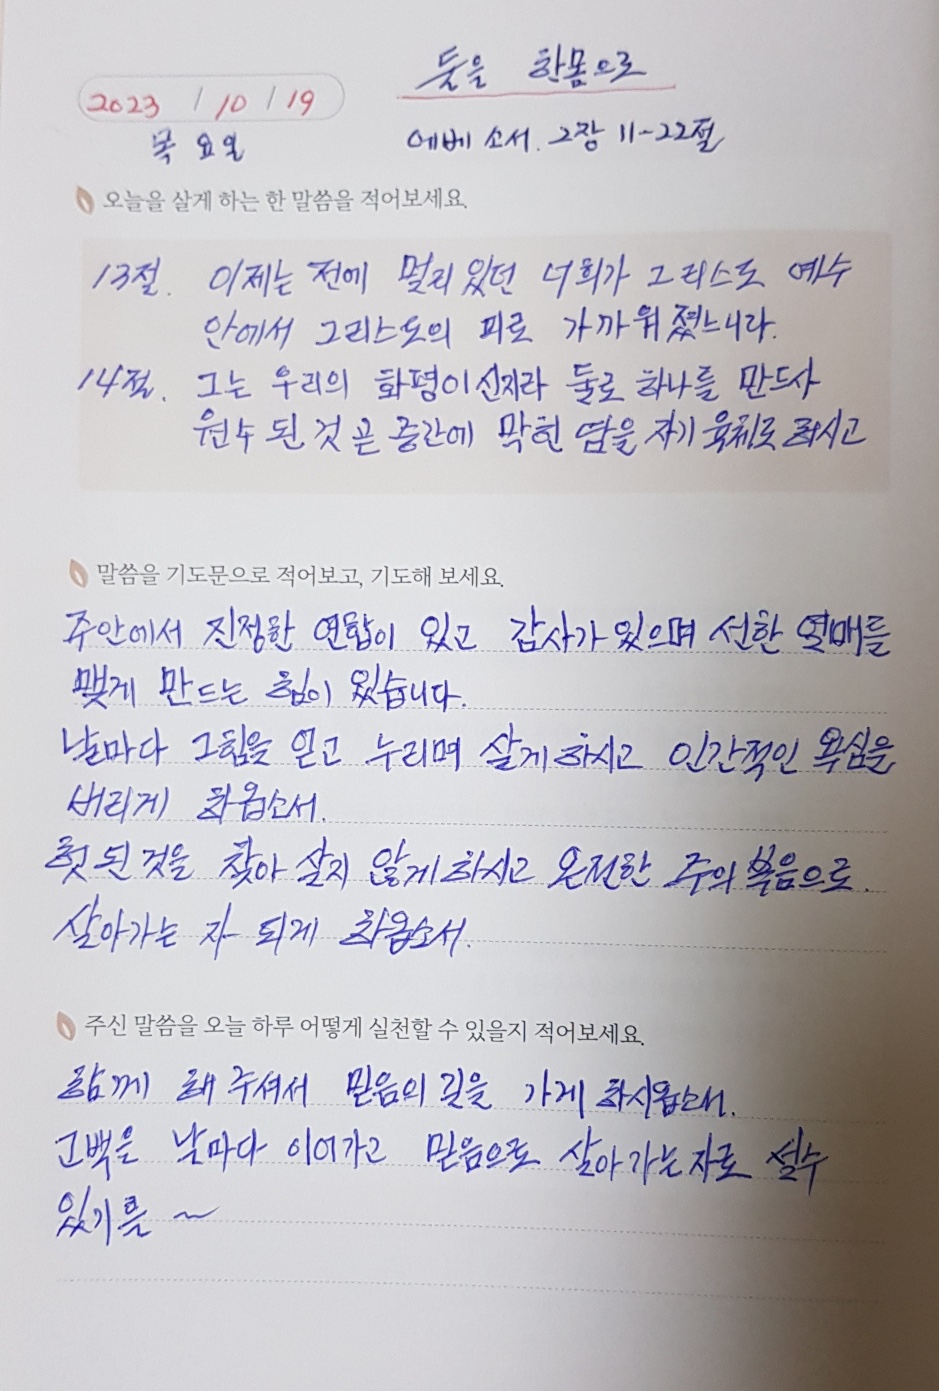 둘을 한몸으로
2023 / 10 / 19
목요일
에베소서. 2장 11-22절
오늘을 살게 하는 한 말씀을 적어보세요.
13절. 이제는 전에 멀리 있던 너희가 그리스도 예수
안에서 그리스도의 피로 가까워 졌느니라.
14절. 그는 우리의 화평이신지라 둘로 하나를 만드사
원수 된 것 곧 중간에 막힌 담을 자기 육체로 허시고
말씀을 기도문으로 적어보고, 기도해 보세요.
주안에서 진정한 연합이 있고 감사가 있으며 선한 열매를
맺게 만드는 힘이 있습니다.
날마다 그힘을 얻고 누리며 살게하시고 인간적인 욕심을
버리게 하옵소서.
헛된것을 찾아 살지 않게하시고 온전한 주의 복음으로.
살아가는 자 되게 하옵소서.
주신 말씀을 오늘 하루 어떻게 실천할 수 있을지 적어보세요.
함께 해 주셔서 믿음의 길을 가게 하시옵소서.
고백은 날마다 이어가고 믿음으로 살아가는자로 설수
있기를 ~